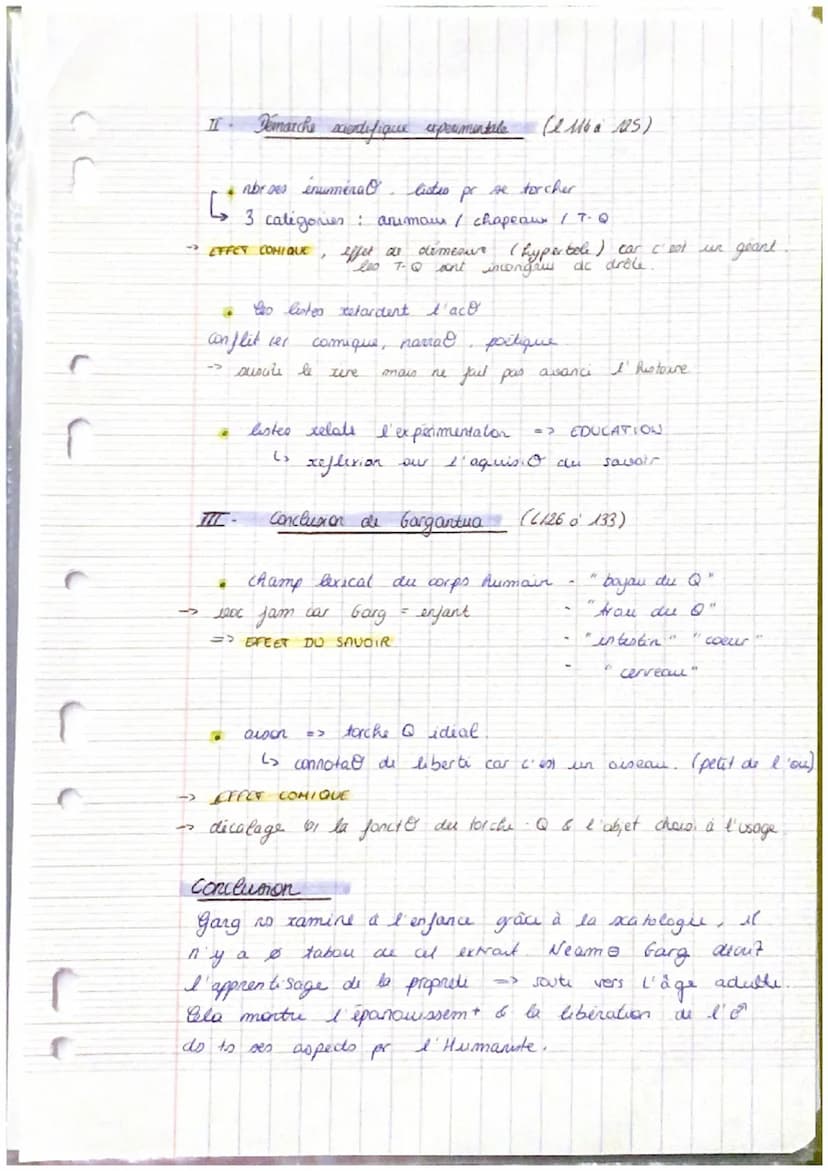 II - Démarche scientifique expérimentale (l 116 à 125)
• nbrses énuméraO, listes pr se torcher
↳ 3 catégories : animaux / chapeaux / T-Q
-> EFFET COMIQUE, effet de démesure (hyperbole) car c'est un géant.
les T-Q sont incongrus dc drôle.
• les listes retardent l'acO
conflit comique, narraO, poétique
-> suscite le rire mais ne fait pas avancé l'histoire
• listes relate l'expérimentaton => EDUCATION
↳ reflexion sur l'aquisiO du savoir
III - Conclusion de Gargantua (l126 à 133)
• champ lexical du corps humain - "boyau du Q"
-> voc fam car Garg = enfant - "trou du Q"
=> EFFET DU SAVOIR - "intestin" "coeur"
- "cerveau"
• oison => torche Q idéal.
↳ connotaO de liberté car c'est un oiseau. (petit de l'oie)
-> EFFET COMIQUE
-> décalage la fonctO du torche-Q & l'objet choisi à l'usage.
Conclusion
Garg ns ramène à l'enfance grâce à la scatologie, il
n'y a ø tabou de cet extrait. Neamo Garg décrit
l'apprentisage de la propreté => saute vers l'âge adulte.
Cela montre l'épanouissem+ & la libération de l'
ds ts ses aspects pr l'Humaniste.